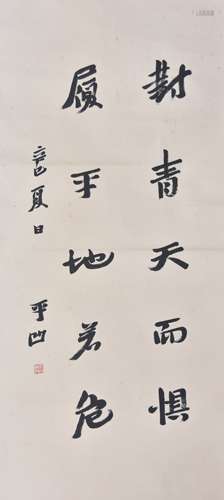 對青天而懼
履平地若危
辛巳夏日
平凹